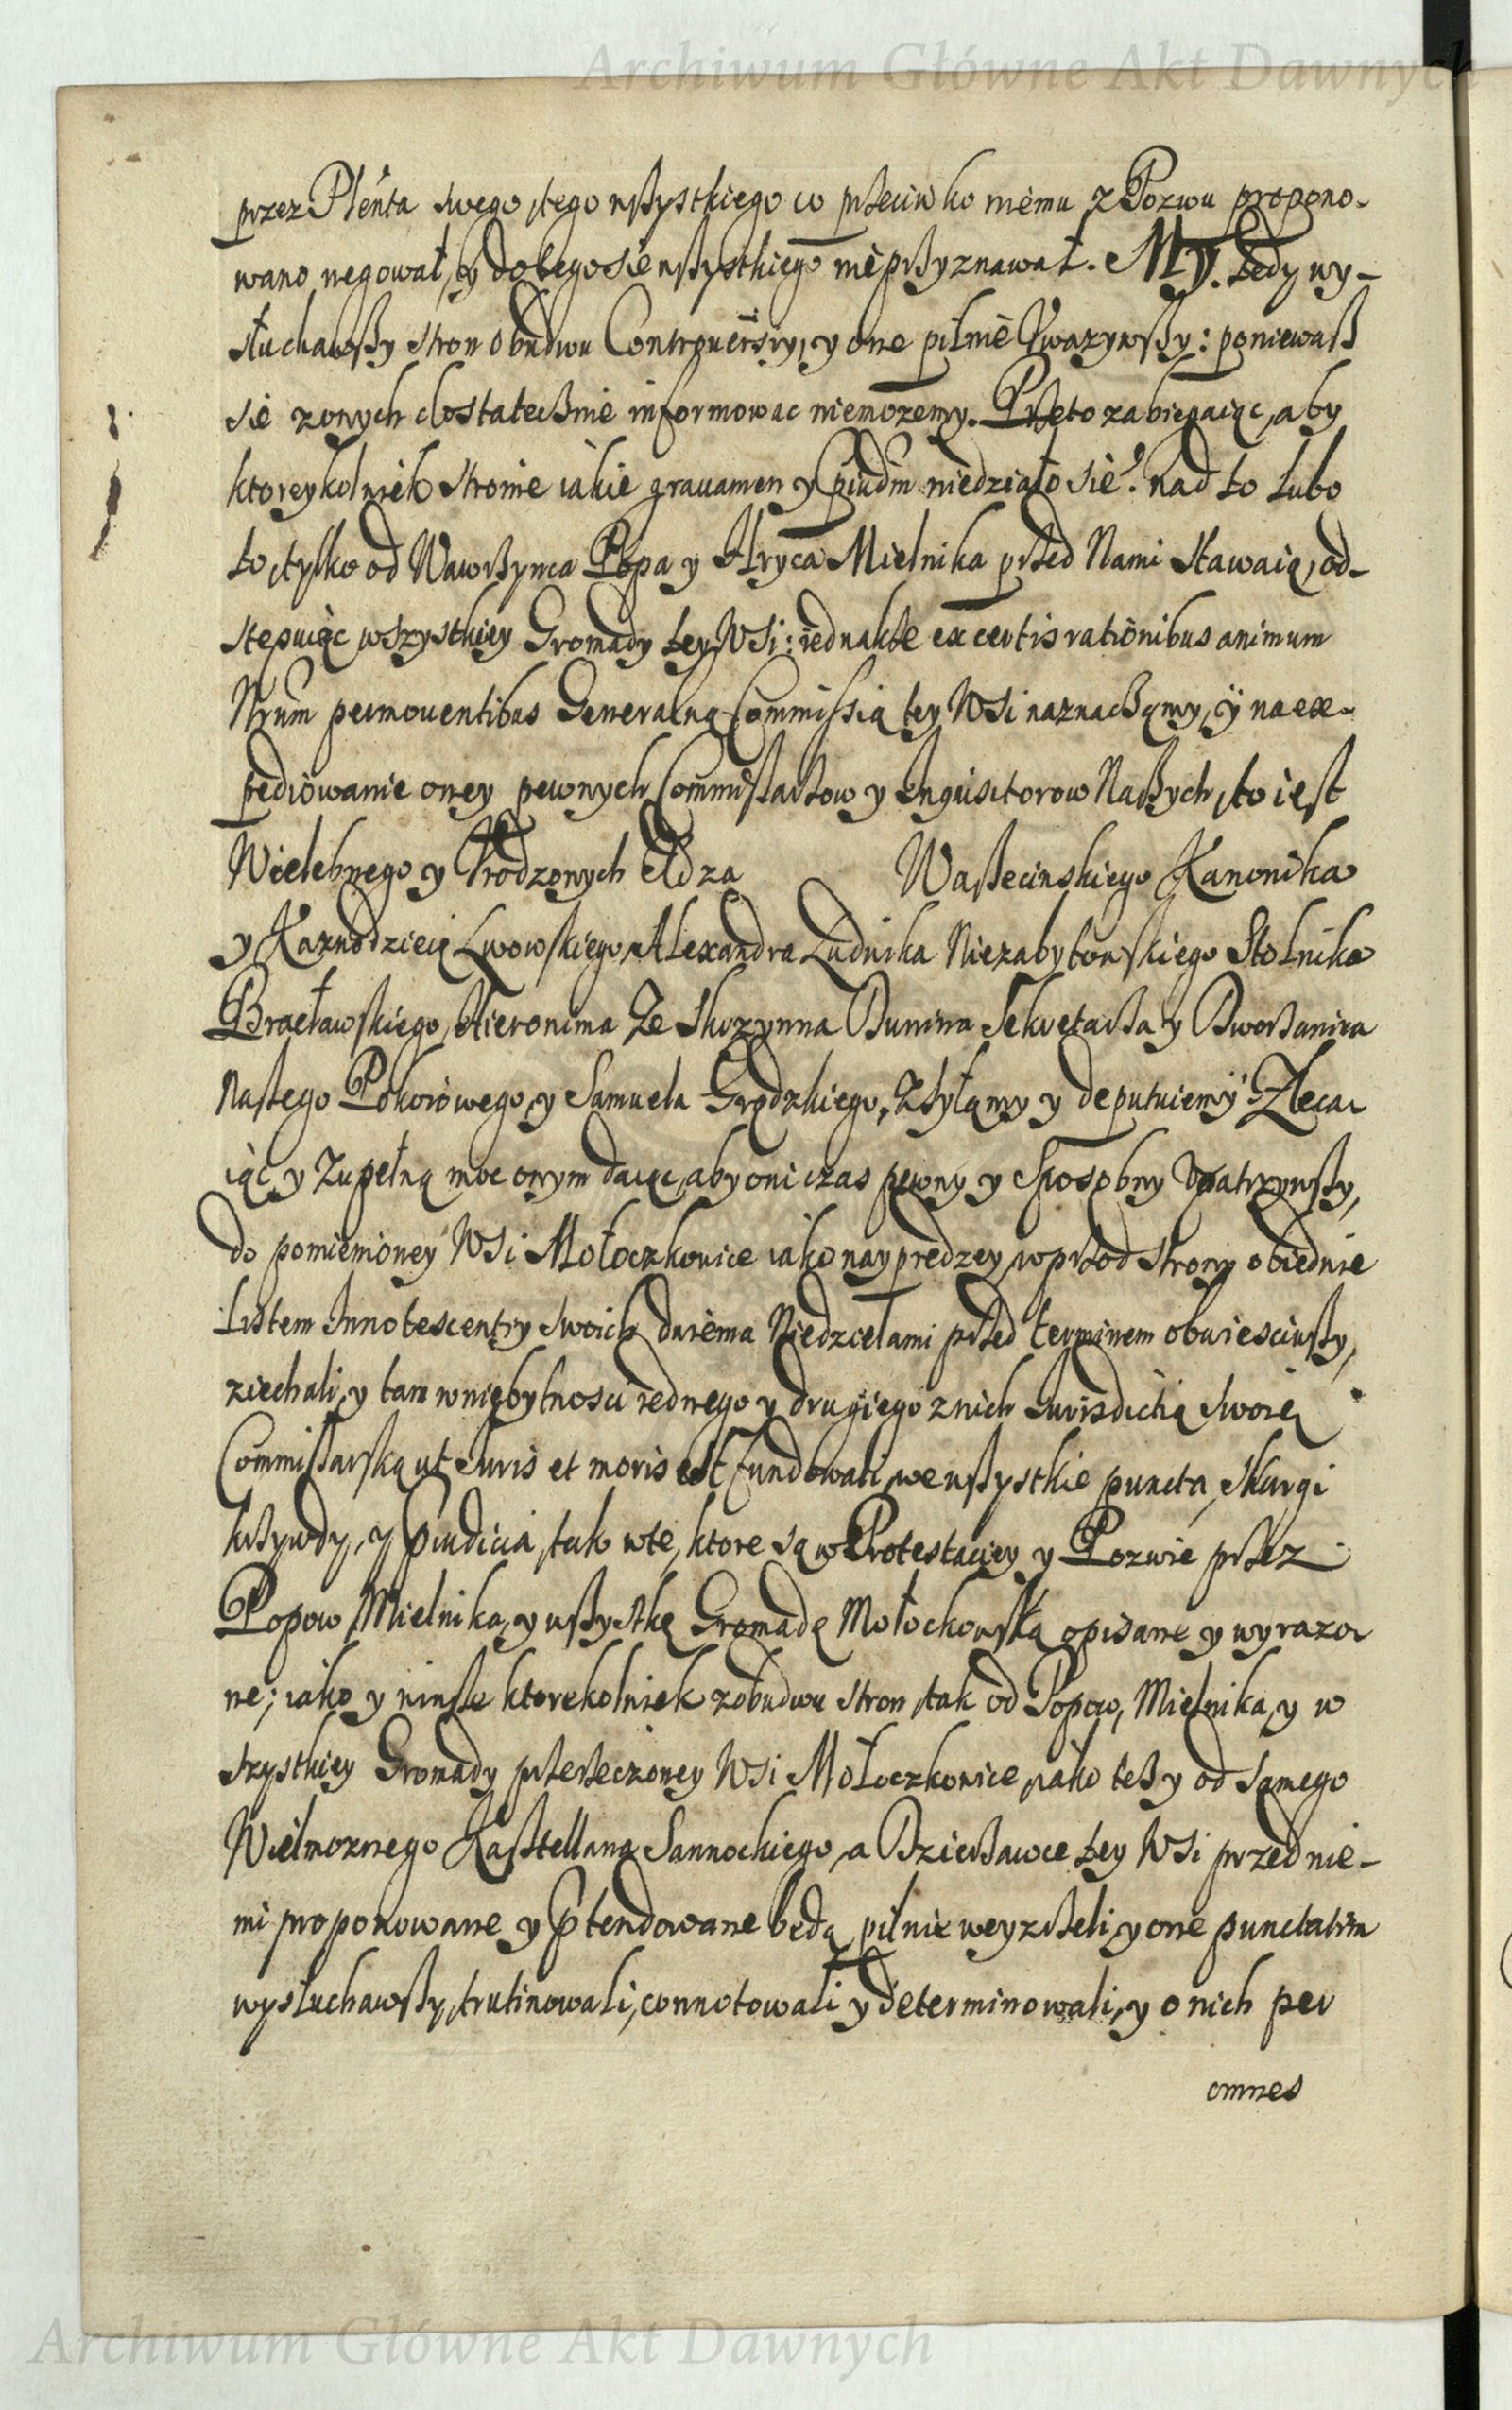 Archiwum Główne Akt Dawnych
przez Plenta swego, tego wszystkiego co przeciwko niemu z Pozwu propono-
wano negował, y do tego sie wszystkiego nie przyznawał. My. tedy wy-
słuchawszy stron obudwu Controuersiy, y one pilnie Uwazywszy: poniewasz
sie z onych dostatecznie informowac niemozemy. Przeto zabiegaiąc, aby
ktoreykolwiek stronie iakie grauamen y Piudm niedziało sie. nad to lubo
to, tylko od Wawrzynca Popa y Hryca Mielnika przed Nami stawaią, od-
stepuiąc wszystkiey Gromady tey Wsi: iednakze ex certis rationibus animum
Nrum permouentibus Generalną Commissią tey Wsi naznaczamy, y na ex-
pediowanie oney pewnych Commissarzow y Inquisitorow Naszych, to iest
Wielebnego y Urodzonych Xdza Waszecinskiego Kanonika
y Kaznodzieię Lwowskiego, Alexandra Ludwika Niezabytowskiego Stolnika
Bracławskiego, Hieronima Ze Skrzynna Dunina Sekretarza y Dworzanina
Naszego Pokoiowego, y Samuela Grodzkiego, Zsyłamy y deputuiemy Zleca-
iąc y Zupełną moc onym daiąc, aby oni czas pewny y Sposobny Upatrzywszy,
do pomienioney Wsi Mołoczkowice iako nayprędzey, wprzod strony obiednie
Listem Innotescentiy swoich dwiema Niedzielami przed terminem obwiesciwszy,
ziechali, y tam w niebytnosci iednego y drugiego z nich Iurisdictią swoię
Commissarską ut Iuris et moris est fundowali, we wszystkie puncta, skargi
krzywdy, y Piudicia, tak w te, ktore są w Protestaciey y Pozwie przez
Popow Mielnika, y wszystkę Gromadę Mołochowską opisane y wyrazo-
ne; iako y ninsze ktorekolwiek z obudwu stron, tak od Popow, Mielnika, y w
szystkiey Gromady przerzeczoney Wsi Mołoczkowice, iako tesz y od samego
Wielmoznego Kasztellana Sannockiego, a Dzierzawce tey Wsi przed nie-
mi proponowane y Ptendowane będą, pilnie weyzrzeli, y one punctatim
wysłuchawszy, trutinowali, connotowali y determinowali, y o nich per
omnes
Archiwum Główne Akt Dawnych